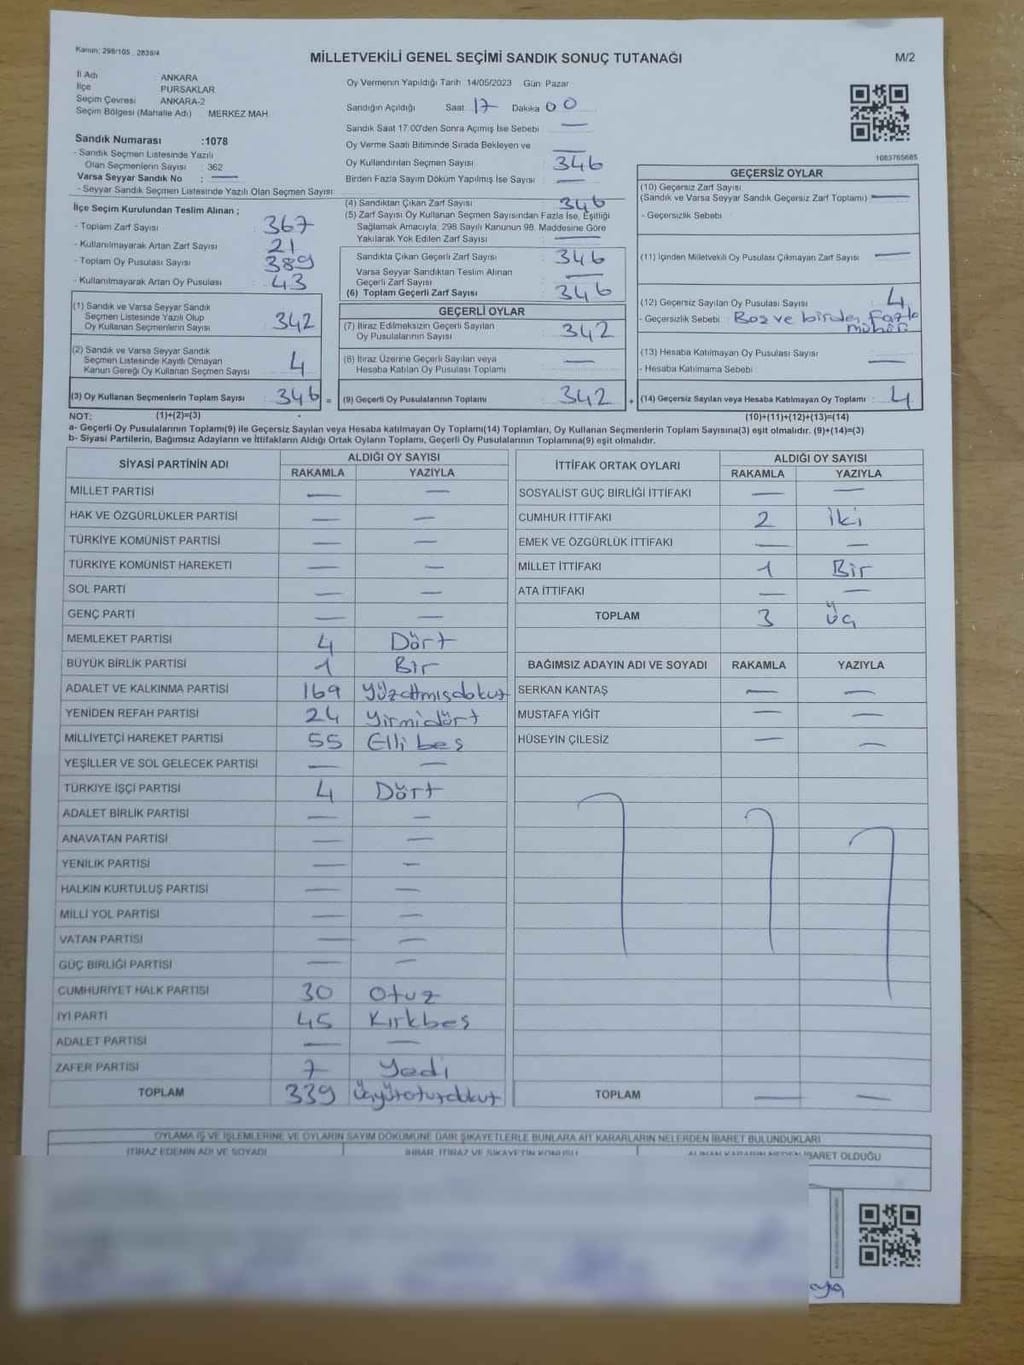 Kanun: 298/105 2839/4
MİLLETVEKİLİ GENEL SEÇİMİ SANDIK SONUÇ TUTANAĞI
M/2
İl Adı : ANKARA
İlçe : PURSAKLAR
Seçim Çevresi : ANKARA-2
Seçim Bölgesi (Mahalle Adı) : MERKEZ MAH
Oy Vermenin Yapıldığı Tarih 14/05/2023 Gün Pazar
Sandığın Açıldığı Saat 17 Dakika 00
Sandık Saat 17:00'den Sonra Açılmış İse Sebebi —
Oy Verme Saati Bitiminde Sırada Bekleyen ve —
Oy Kullandırılan Seçmen Sayısı 346
Birden Fazla Sayım Döküm Yapılmış İse Sayısı —
Sandık Numarası :1078
- Sandık Seçmen Listesinde Yazılı
Olan Seçmenlerin Sayısı : 362
Varsa Seyyar Sandık No : —
- Seyyar Sandık Seçmen Listesinde Yazılı Olan Seçmen Sayısı:
1083765685
İlçe Seçim Kurulundan Teslim Alınan ;
- Toplam Zarf Sayısı : 367
- Kullanılmayarak Artan Zarf Sayısı : 21
- Toplam Oy Pusulası Sayısı : 389
- Kullanılmayarak Artan Oy Pusulası : 43
(1) Sandık ve Varsa Seyyar Sandık
Seçmen Listesinde Yazılı Olup
Oy Kullanan Seçmenlerin Sayısı : 342
(2) Sandık ve Varsa Seyyar Sandık
Seçmen Listesinde Kayıtlı Olmayan
Kanun Gereği Oy Kullanan Seçmen Sayısı : 4
(3) Oy Kullanan Seçmenlerin Toplam Sayısı 346 =
(4) Sandıktan Çıkan Zarf Sayısı 346
(5) Zarf Sayısı Oy Kullanan Seçmen Sayısından Fazla İse, Eşitliği
Sağlamak Amacıyla, 298 Sayılı Kanunun 98. Maddesine Göre
Yakılarak Yok Edilen Zarf Sayısı —
Sandıkta Çıkan Geçerli Zarf Sayısı : 346
Varsa Seyyar Sandıktan Teslim Alınan
Geçerli Zarf Sayısı : —
(6) Toplam Geçerli Zarf Sayısı : 346
GEÇERLİ OYLAR
(7) İtiraz Edilmeksizin Geçerli Sayılan
Oy Pusulalarının Sayısı : 342
(8) İtiraz Üzerine Geçerli Sayılan veya
Hesaba Katılan Oy Pusulası Toplamı : —
(9) Geçerli Oy Pusulalarının Toplamı : 342 +
GEÇERSİZ OYLAR
(10) Geçersiz Zarf Sayısı
(Sandık ve Varsa Seyyar Sandık Geçersiz Zarf Toplamı) —
- Geçersizlik Sebebi :
(11) İçinden Milletvekili Oy Pusulası Çıkmayan Zarf Sayısı —
(12) Geçersiz Sayılan Oy Pusulası Sayısı : 4
- Geçersizlik Sebebi : Boş ve birden fazla
mühür
(13) Hesaba Katılmayan Oy Pusulası Sayısı : —
- Hesaba Katılmama Sebebi :
(14) Geçersiz Sayılan veya Hesaba Katılmayan Oy Toplamı : 4
NOT: (1)+(2)=(3)
(10)+(11)+(12)+(13)=(14)
a- Geçerli Oy Pusulalarının Toplamı(9) ile Geçersiz Sayılan veya Hesaba katılmayan Oy Toplamı(14) Toplamları, Oy Kullanan Seçmenlerin Toplam Sayısına(3) eşit olmalıdır. (9)+(14)=(3)
b- Siyasi Partilerin, Bağımsız Adayların ve İttifakların Aldığı Ortak Oyların Toplamı, Geçerli Oy Pusulalarının Toplamına(9) eşit olmalıdır.
SİYASİ PARTİNİN ADI ALDIĞI OY SAYISI
RAKAMLA YAZIYLA
MİLLET PARTİSİ — —
HAK VE ÖZGÜRLÜKLER PARTİSİ — —
TÜRKİYE KOMÜNİST PARTİSİ — —
TÜRKİYE KOMÜNİST HAREKETİ — —
SOL PARTİ — —
GENÇ PARTİ — —
MEMLEKET PARTİSİ 4 Dört
BÜYÜK BİRLİK PARTİSİ 1 Bir
ADALET VE KALKINMA PARTİSİ 169 Yüzatmışdokuz
YENİDEN REFAH PARTİSİ 24 Yirmidört
MİLLİYETÇİ HAREKET PARTİSİ 55 Elli beş
YEŞİLLER VE SOL GELECEK PARTİSİ — —
TÜRKİYE İŞÇİ PARTİSİ 4 Dört
ADALET BİRLİK PARTİSİ — —
ANAVATAN PARTİSİ — —
YENİLİK PARTİSİ — —
HALKIN KURTULUŞ PARTİSİ — —
MİLLİ YOL PARTİSİ — —
VATAN PARTİSİ — —
GÜÇ BİRLİĞİ PARTİSİ — —
CUMHURİYET HALK PARTİSİ 30 Otuz
İYİ PARTİ 45 Kırkbeş
ADALET PARTİSİ — —
ZAFER PARTİSİ 7 Yedi
TOPLAM 339 Üçyüzotuzdokuz
İTTİFAK ORTAK OYLARI ALDIĞI OY SAYISI
RAKAMLA YAZIYLA
SOSYALİST GÜÇ BİRLİĞİ İTTİFAKI — —
CUMHUR İTTİFAKI 2 İki
EMEK VE ÖZGÜRLÜK İTTİFAKI — —
MİLLET İTTİFAKI 1 Bir
ATA İTTİFAKI — —
TOPLAM 3 Üç
BAĞIMSIZ ADAYIN ADI VE SOYADI RAKAMLA YAZIYLA
SERKAN KANTAŞ — —
MUSTAFA YİĞİT — —
HÜSEYİN ÇİLESİZ — —
TOPLAM — —
OYLAMA İŞ VE İŞLEMLERİNE VE OYLARIN SAYIM DÖKÜMÜNE DAİR ŞİKAYETLERLE BUNLARA AİT KARARLARIN NELERDEN İBARET BULUNDUKLARI
İTİRAZ EDENİN ADI VE SOYADI İHBAR, İTİRAZ VE ŞİKAYETİN KONUSU ALINAN KARARIN NEDEN İBARET OLDUĞU